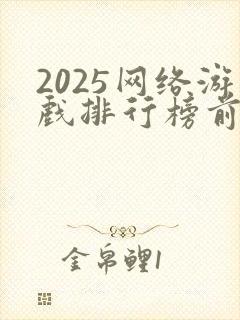 2025网络游
戏排行榜前
金帛鲤1